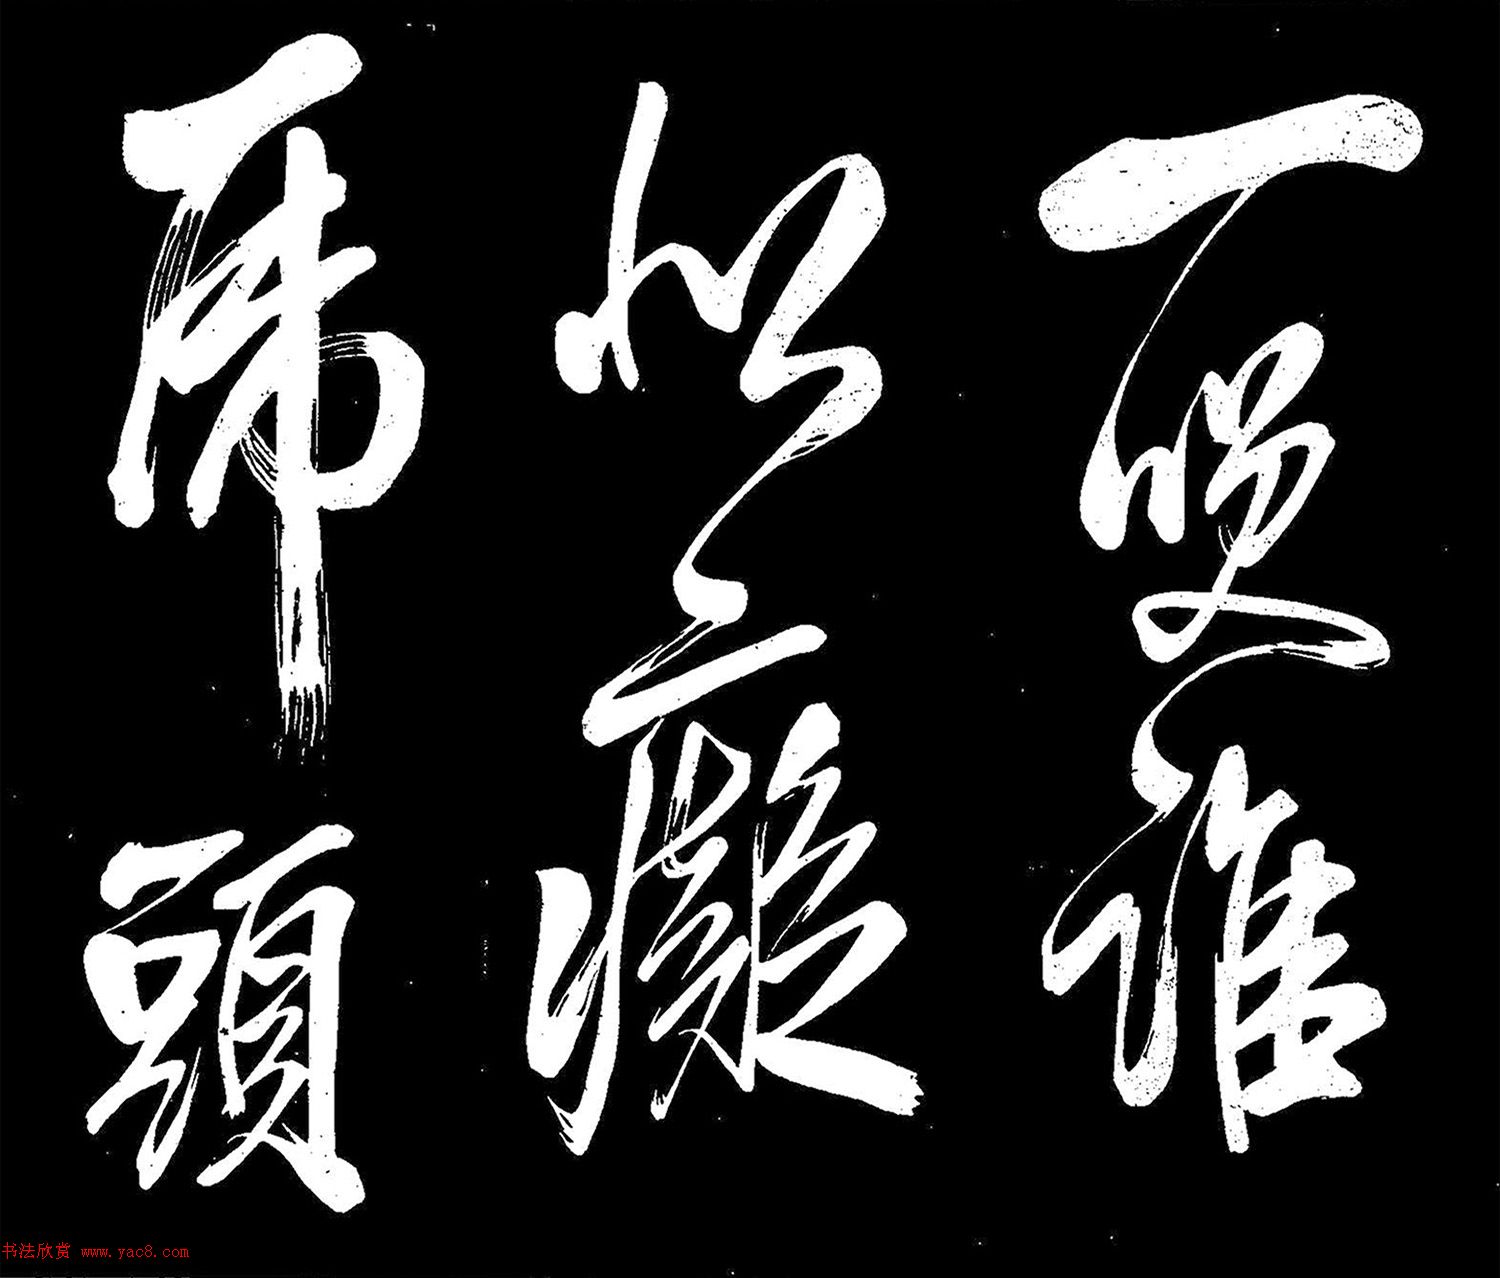 更誰
似癡
虎頭
书法欣赏 www.yac8.com